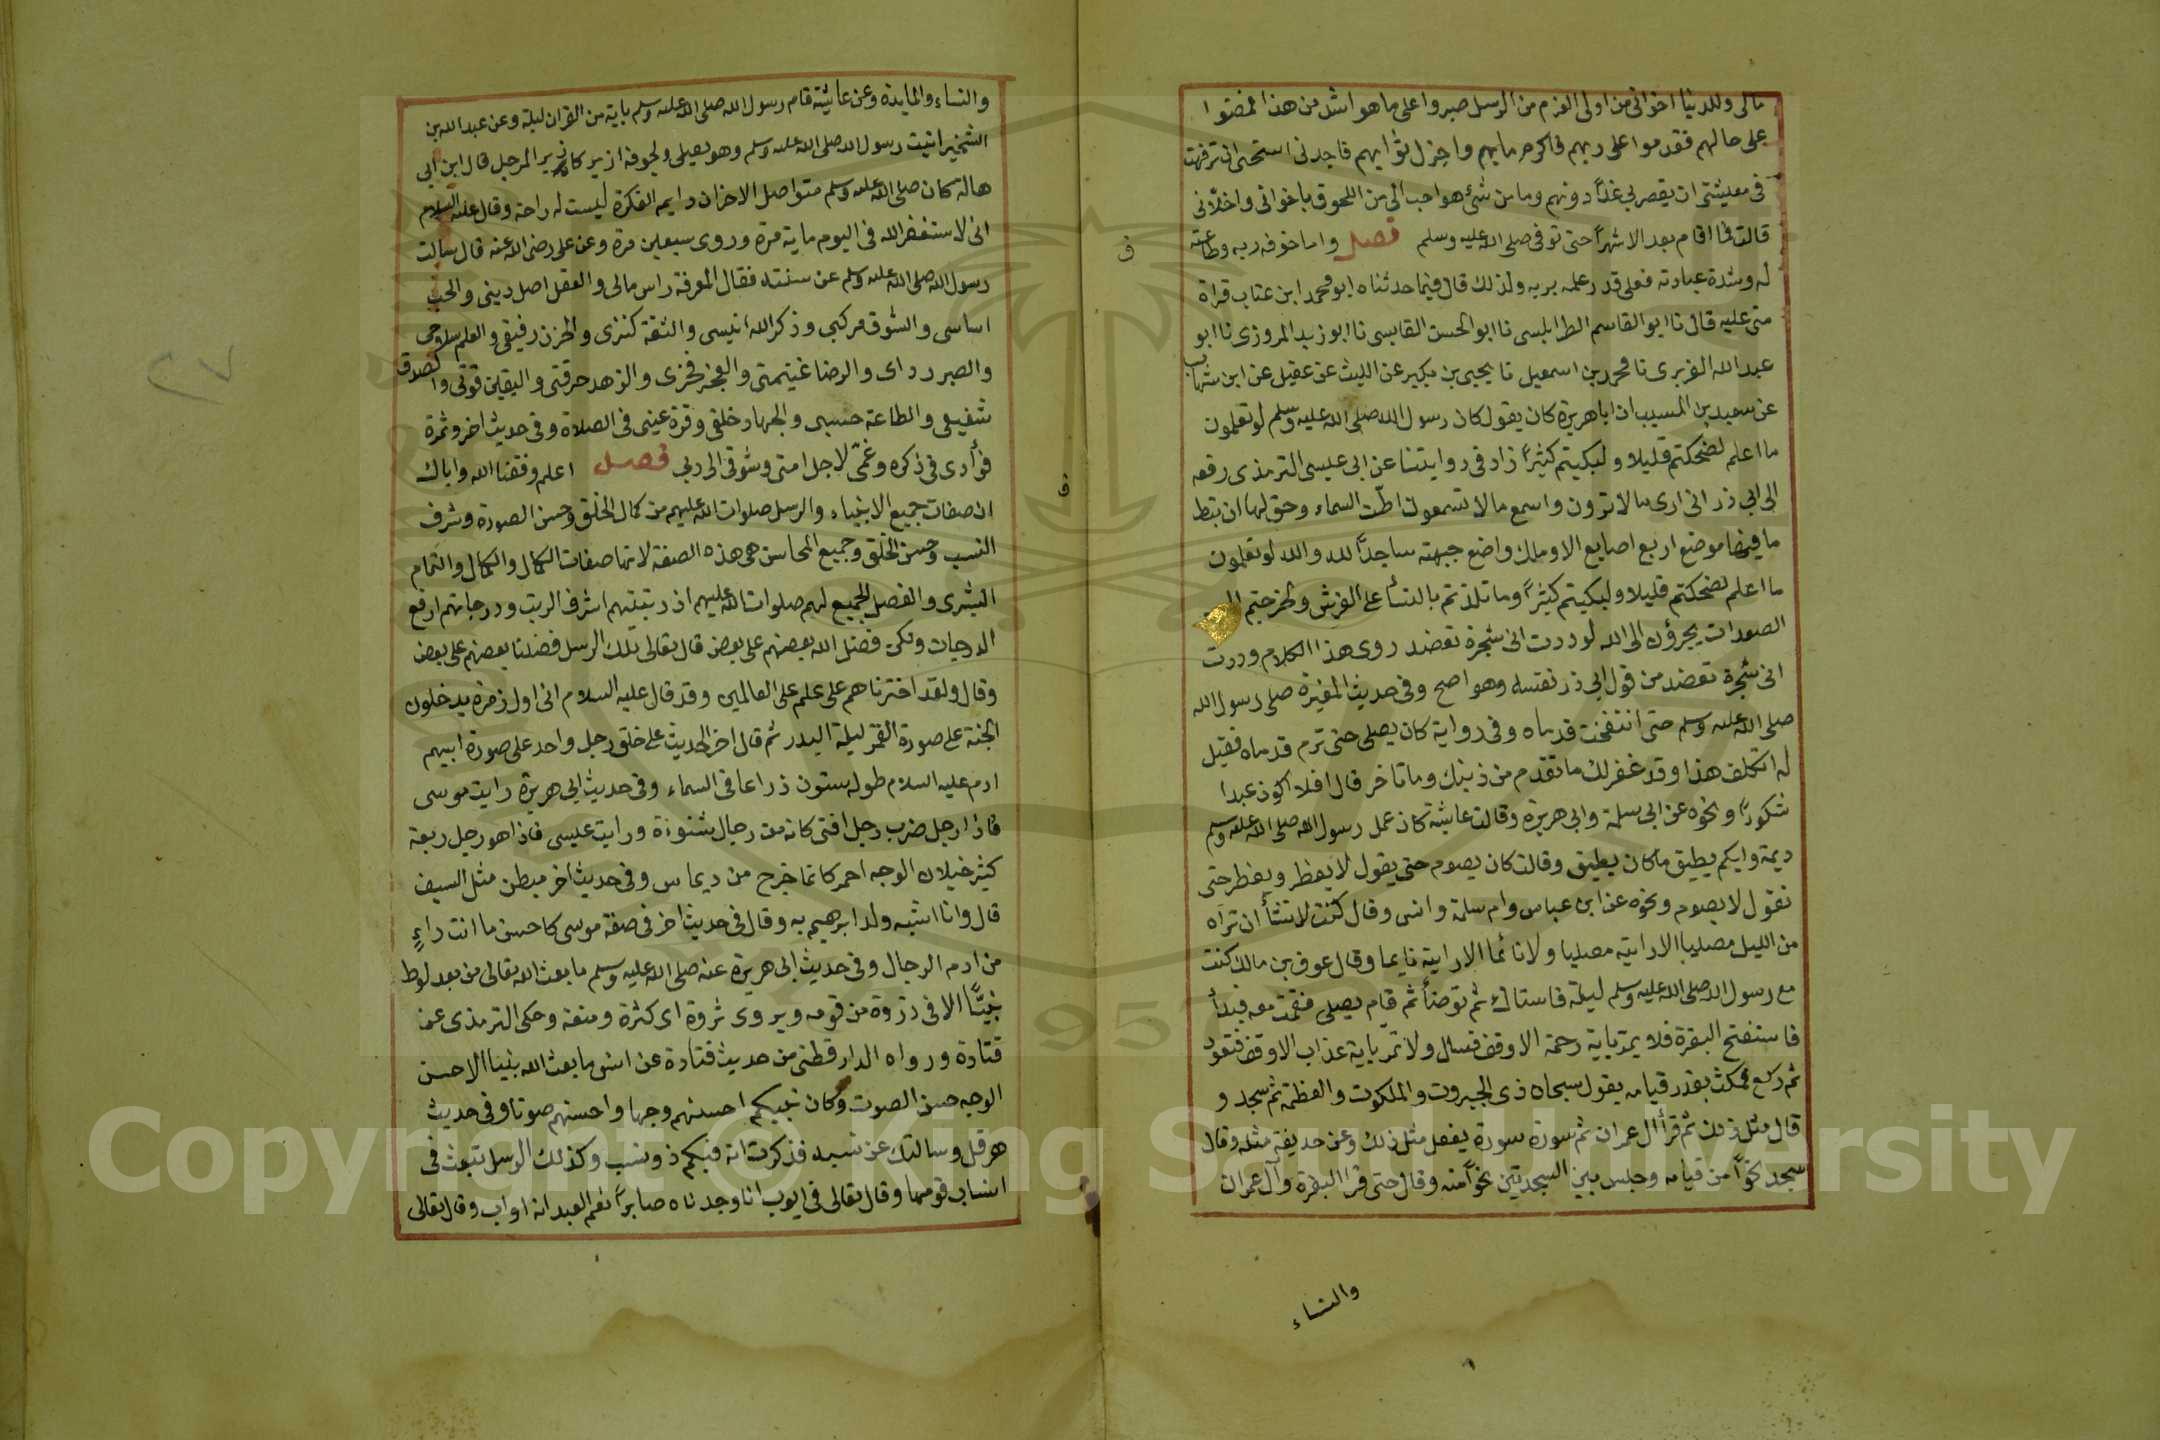 مالى وللدنيا اخوانى من اولى العزم من الرسل صبروا على ما هو اشد من هذا فمضوا
على حالهم فقدموا على ربهم فاكرم مابهم واجزل ثوابهم فاجدنى استحى ان ترفهت
فى معيشتى ان يقصر بى غدًا دونهم وما من شئ هو احب الى من اللحوق باخوانى واخلائى
قالت فما اقام بعد الا شهرًا حتى توفى صلى الله عليه وسلم فصل واما خوفه ربه وطاعته
له وشدة عبادته فعلى قدر علمه بربه ولذلك قال فيما حدثناه ابو محمد ابن عتاب قراة
منى عليه قال نا ابو القاسم الطرابلسى نا ابو الحسن القابسى نا ابو زيد المروزى نا ابو
عبد الله الفربرى نا محمد بن اسمعيل نا يحيى بن بكير عن الليث عن عقيل عن ابن شهاب
عن سعيد بن المسيب ان ابا هريرة كان يقول كان رسول الله صلى الله عليه وسلم لو تعلمون
ما اعلم لضحكتم قليلا ولبكيتم كثيرًا زاد فى روايتنا عن ابى عيسى الترمذى رفعه
الى ابى ذر انى ارى ما لا ترون واسمع ما لا تسمعون اطّت السماء وحق لها ان تئط
ما فيها موضع اربع اصابع الا وملك واضع جبهته ساجدًا لله والله لو تعلمون
ما اعلم لضحكتم قليلا ولبكيتم كثيرًا وما تلذذتم بالنساء على الفرش ولخرجتم
الصعدات تجرؤن الى الله لوددت انى شجرة تعضد روى هذا الكلام وددت
انى شجرة تعضد من قول ابى ذر نفسه وهو اصح وفى حديث المغيرة صلى رسول الله
صلى الله عليه وسلم حتى انتفخت قدماه وفى رواية كان يصلى حتى ترم قدماه فقيل
له اتكلف هذا وقد غفر لك ما تقدم من ذنبك وما تاخر قال افلا اكون عبدا
شكورًا ونحوه عن ابى سلمة وابى هريرة وقالت عايشة كان عمل رسول الله صلى الله عليه وسلم
ديمة وايكم يطيق ما كان يطيق وقالت كان يصوم حتى يقول لا يفطر ويفطر حتى
نقول لا يصوم ونحوه عن ابن عباس وام سلمة وانس وقال كنت لا تشأ ان تراه
من الليل مصليا الا رايته مصليا ولا نائما الا رايته نايما وقال عوف بن مالك كنت
مع رسول الله صلى الله عليه وسلم ليلة فاستاك ثم توضأ ثم قام يصلى فقمت معه فبدأ
فاستفتح البقرة فلا يمر باية رحمة الا وقف فسال ولا تمرّ باية عذاب الا وقف فتعوذ
ثم ركع فمكث بقدر قيامه يقول سبحان ذى الجبروت والملكوت والعظمة ثم سجد و
قال مثل ذلك ثم قرأ ال عمران ثم سورة سورة يفعل مثل ذلك وعن حذيفة مثله وقال
سجد نحوًا من قيامه وجلس بين السجدتين نحوًا منه وقال حتى قرا البقرة وآل عمران
والنساء
والنساء والمايدة وعن عايشة قام رسول الله صلى الله عليه وسلم باية من القران ليلة وعن عبد الله بن
الشخير اتيت رسول الله صلى الله عليه وسلم وهو يصلى ولجوفه ازيز كازيز المرجل قال ابن ابى
هالة كان صلى الله عليه وسلم متواصل الاحزان دايم الفكرة ليست له راحة وقال عليه السلام
انى لاستغفر الله فى اليوم ماية مرة وروى سبعين مرة وعن على رضى الله عنه قال سالت
رسول الله صلى الله عليه وسلم عن سنته فقال المعرفة راس مالى والعقل اصل دينى والحب
اساسى والشوق مركبى وذكر الله انيسى والثقة كنزى والحزن رفيقى والعلم سلاحى
والصبر رداى والرضا غنيمتى والعجز فخرى والزهد حرفتى واليقين قوتى والصدق
شفيعى والطاعة حسبى والجهاد خلقى وقرة عينى فى الصلاة وفى حديث اخر وثمرة
فؤادى فى ذكره وغمّى لاجل امتى وشوقى الى ربى فصل اعلم وفقنا الله واياك
ان صفات جميع الانبياء والرسل صلوات الله عليهم من كمال الخلق وحسن الصورة وشرف
النسب وحسن الخلق وجميع المحاسن هى هذه الصفة لانها صفات الكمال والكمال والتمام
البشرى والفضل الجميع لهم صلوات الله عليهم اذ رتبتهم اشرف الرتب ودرجاتهم ارفع
الدرجات ولكن فضل الله بعضهم على بعض قال تعالى تلك الرسل فضلنا بعضهم على بعض
وقال ولقد اخترناهم على علم على العالمين وقد قال عليه السلام انى اول زمرة يدخلون
الجنة على صورة القمر ليلة البدر ثم قال اخر الحديث على خلق رجل واحد على صورة ابيهم
ادم عليه السلام طوله ستون ذراعا فى السماء وفى حديث ابى هريرة رايت موسى
فاذا رجل ضرب رجل اقنى كانه من رجال شنوءة ورايت عيسى فاذا هو رجل ربعة
كثير خيلان الوجه احمر كانما خرج من ديماس وفى حديث اخر مبطن مثل السيف
قال وانا اشبه ولد ابرهيم به وقال فى حديث اخر فى صفة موسى كاحسن ما انت راءٍ
من ادم الرجال وفى حديث ابى هريرة عنه صلى الله عليه وسلم ما بعث الله تعالى من بعد لوط
نبيًّا الا فى ذروة من قومه ويروى ثروة اى كثرة ومنعة وحكى الترمذى عن
قتادة ورواه الدارقطنى من حديث قتادة عن انس ما بعث الله نبيا الا حسن
الوجه حسن الصوت وكان نبيكم احسنهم وجها واحسنهم صوتا وفى حديث
هرقل وسالتك عن نسبه فذكرت انه فيكم ذو نسب وكذلك الرسل تبعث فى
انساب قومها وقال تعالى فى ايوب انا وجدناه صابرًا نعم العبد انه اواب وقال تعالى
٢٧
Copyright © King Saud University
1957